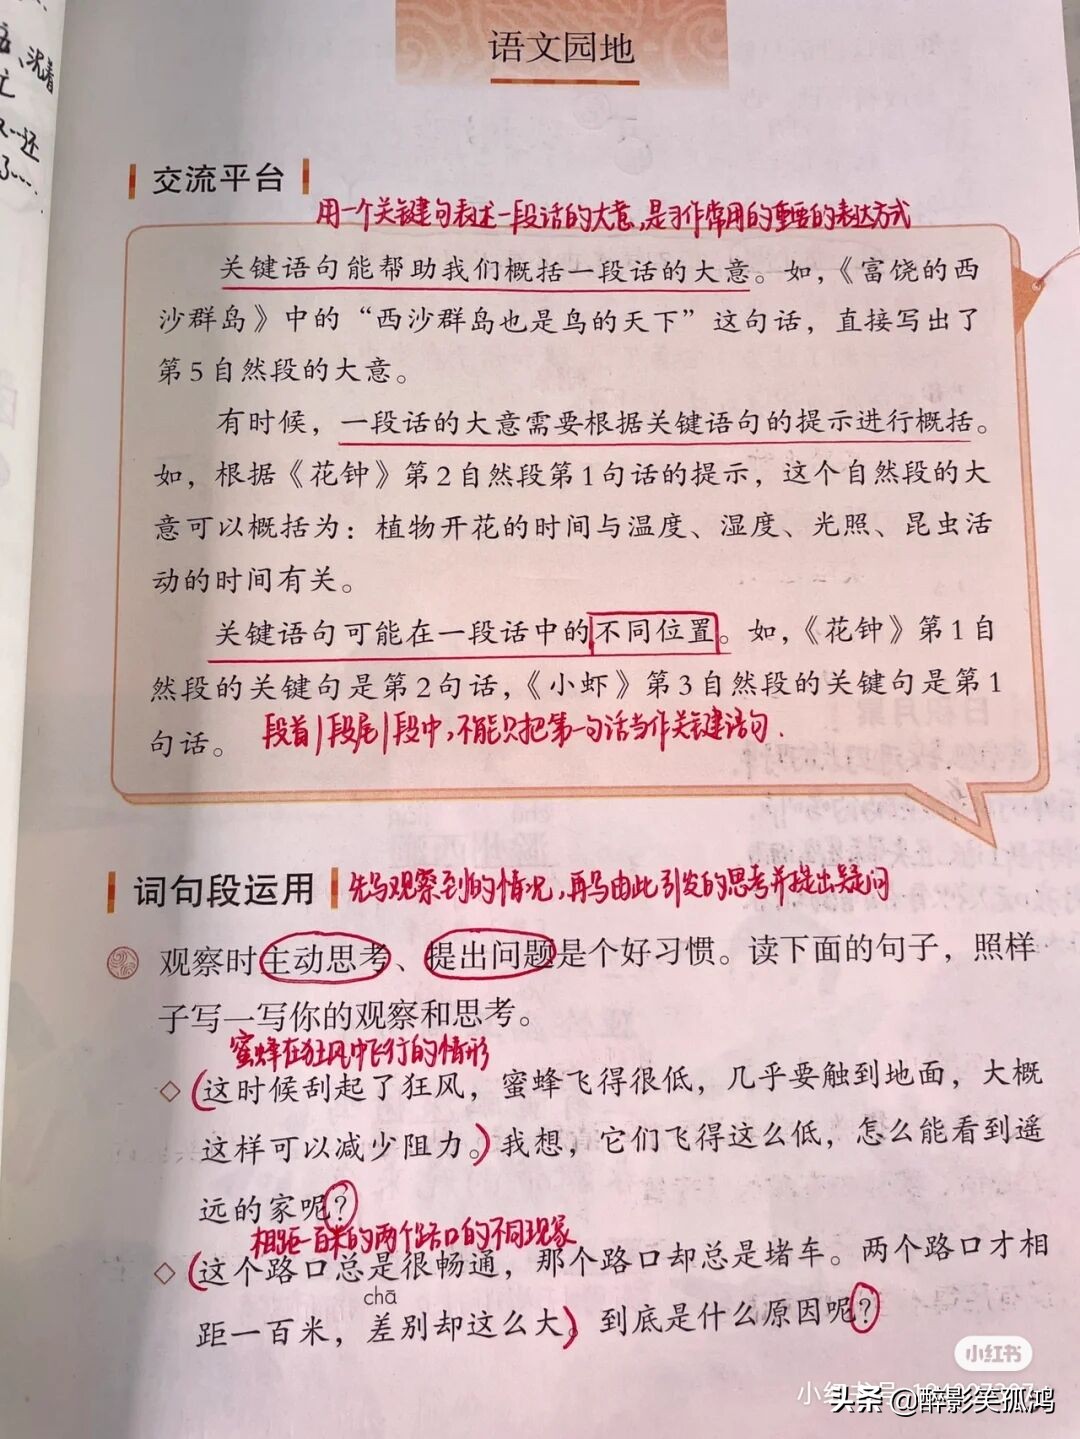 语文园地
交流平台
用一个关键句表述一段话的大意,是习作常用的重要的表达方式
关键语句能帮助我们概括一段话的大意。如,《富饶的西
沙群岛》中的“西沙群岛也是鸟的天下”这句话,直接写出了
第5自然段的大意。
有时候,一段话的大意需要根据关键语句的提示进行概括。
如,根据《花钟》第2自然段第1句话的提示,这个自然段的大
意可以概括为:植物开花的时间与温度、湿度、光照、昆虫活
动的时间有关。
关键语句可能在一段话中的不同位置。如,《花钟》第1自
然段的关键句是第2句话,《小虾》第3自然段的关键句是第1
句话。
段首|段尾|段中,不能只把第一句话当作关键语句.
词句段运用
先写观察到的情况,再写由此引发的思考并提出疑问
观察时主动思考、提出问题是个好习惯。读下面的句子,照样
子写一写你的观察和思考。
蜜蜂在狂风中飞行的情形
◇(这时候刮起了狂风,蜜蜂飞得很低,几乎要触到地面,大概
这样可以减少阻力。)我想,它们飞得这么低,怎么能看到遥
远的家呢?
相距一百米的两个路口的不同现象
◇(这个路口总是很畅通,那个路口却总是堵车。两个路口才相
chā
距一百米,差别却这么大,)到底是什么原因呢?
小红书
小红书号
头条@醉影笑孤鸿